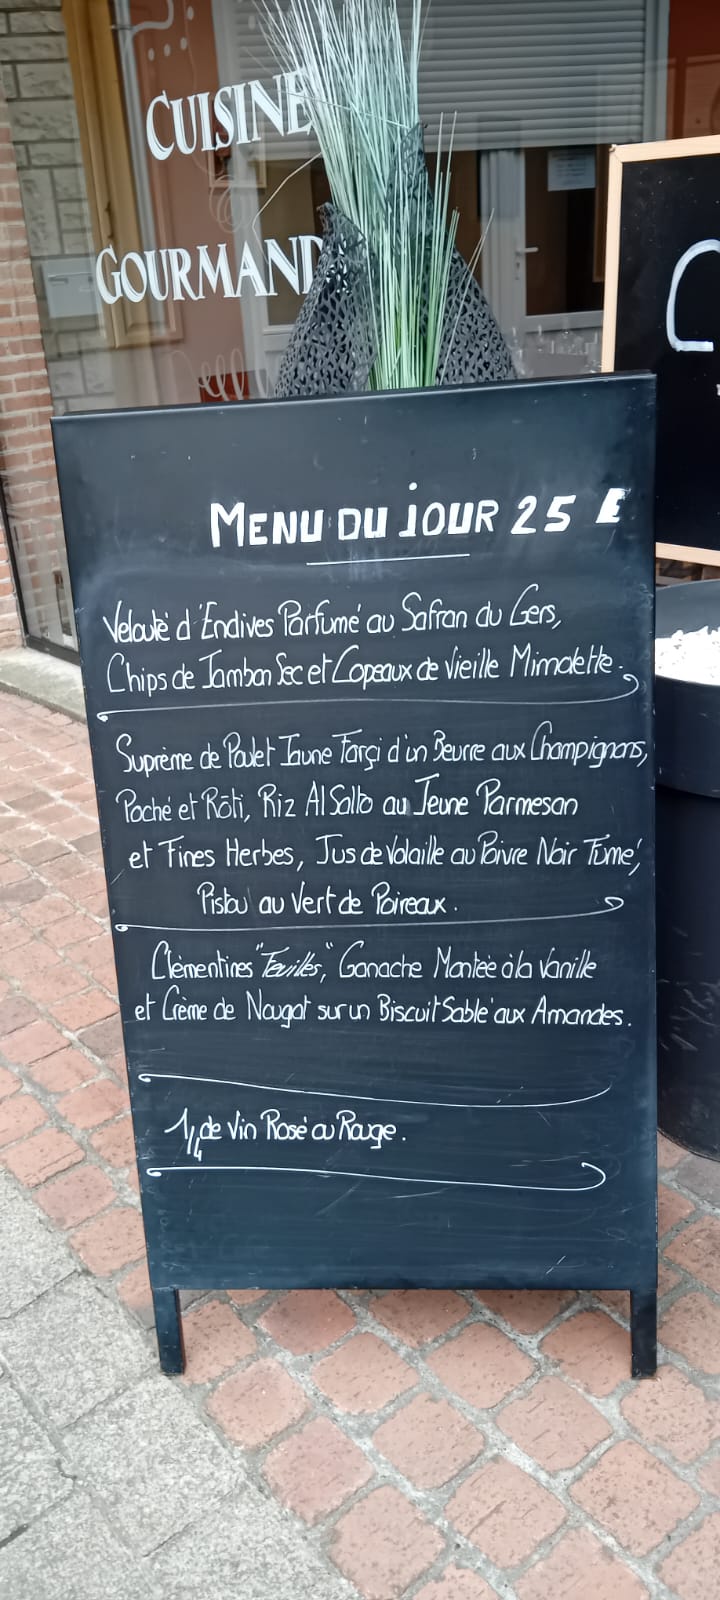 CUISINE
GOURMAND
MENU DU JOUR 25 E
Velouté d'Endives Parfumé au Safran du Gers,
Chips de Jambon Sec et Copeaux de Vieille Mimolette.
Suprème de Poulet Jaune Farçi d'un Beurre aux Champignons,
Poché et Rôti, Riz Al Salto au Jeune Parmesan
et Fines Herbes, Jus de Volaille au Poivre Noir Fumé,
Pistou au Vert de Poireaux.
Clémentines "Feuilles", Ganache Montée à la Vanille
et Crème de Nougat sur un Biscuit Sablé aux Amandes.
1/4 de Vin Rosé ou Rouge.